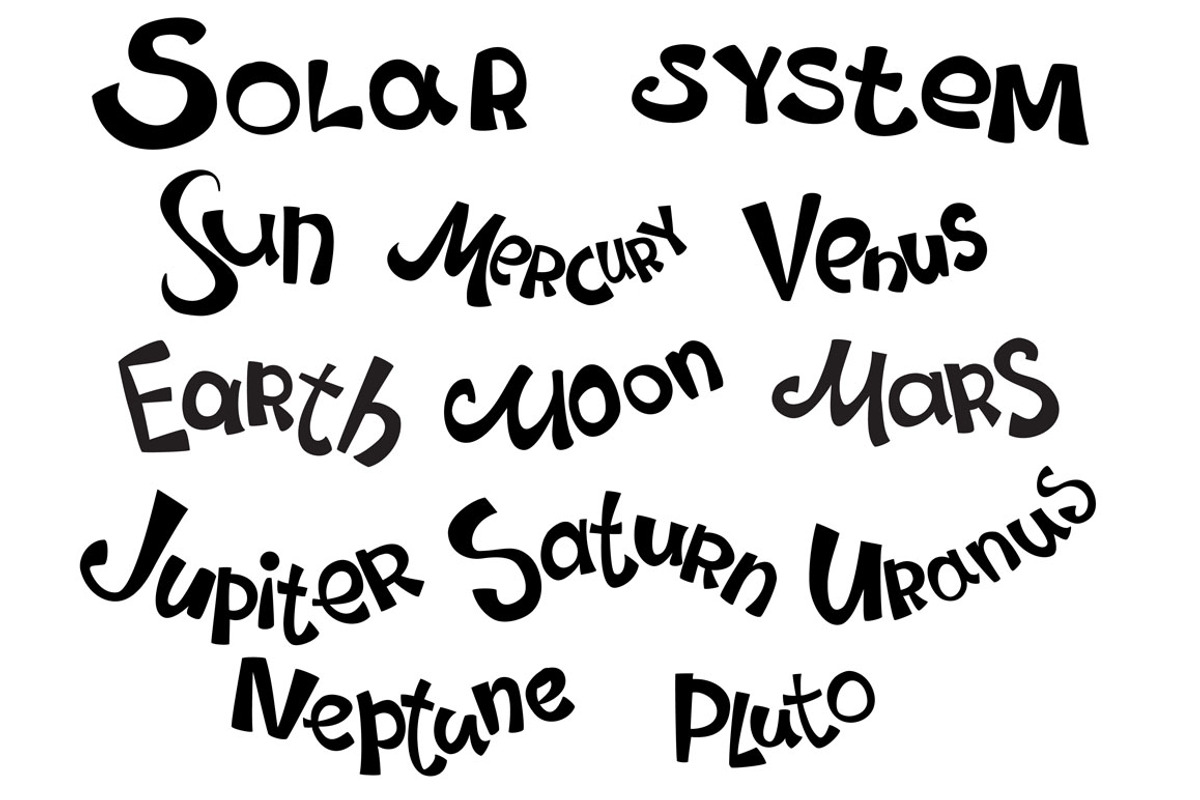 Solar system
Sun Mercury Venus
Earth Moon Mars
Jupiter Saturn Uranus
Neptune Pluto